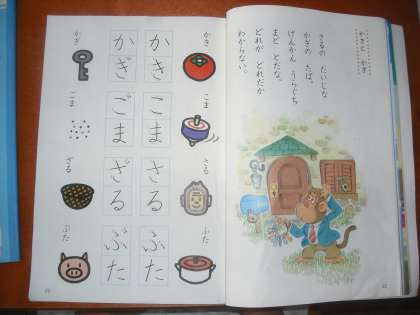 かきと かぎ
さるの だいじな
かぎの たば。
げんかん うらぐち
まど とだな。
どれが どれだか
わからない。
かき
かき
かぎ
かぎ
こま
こま
ごま
ごま
さる
さる
ざる
ざる
ふた
ふた
ぶた
ぶた